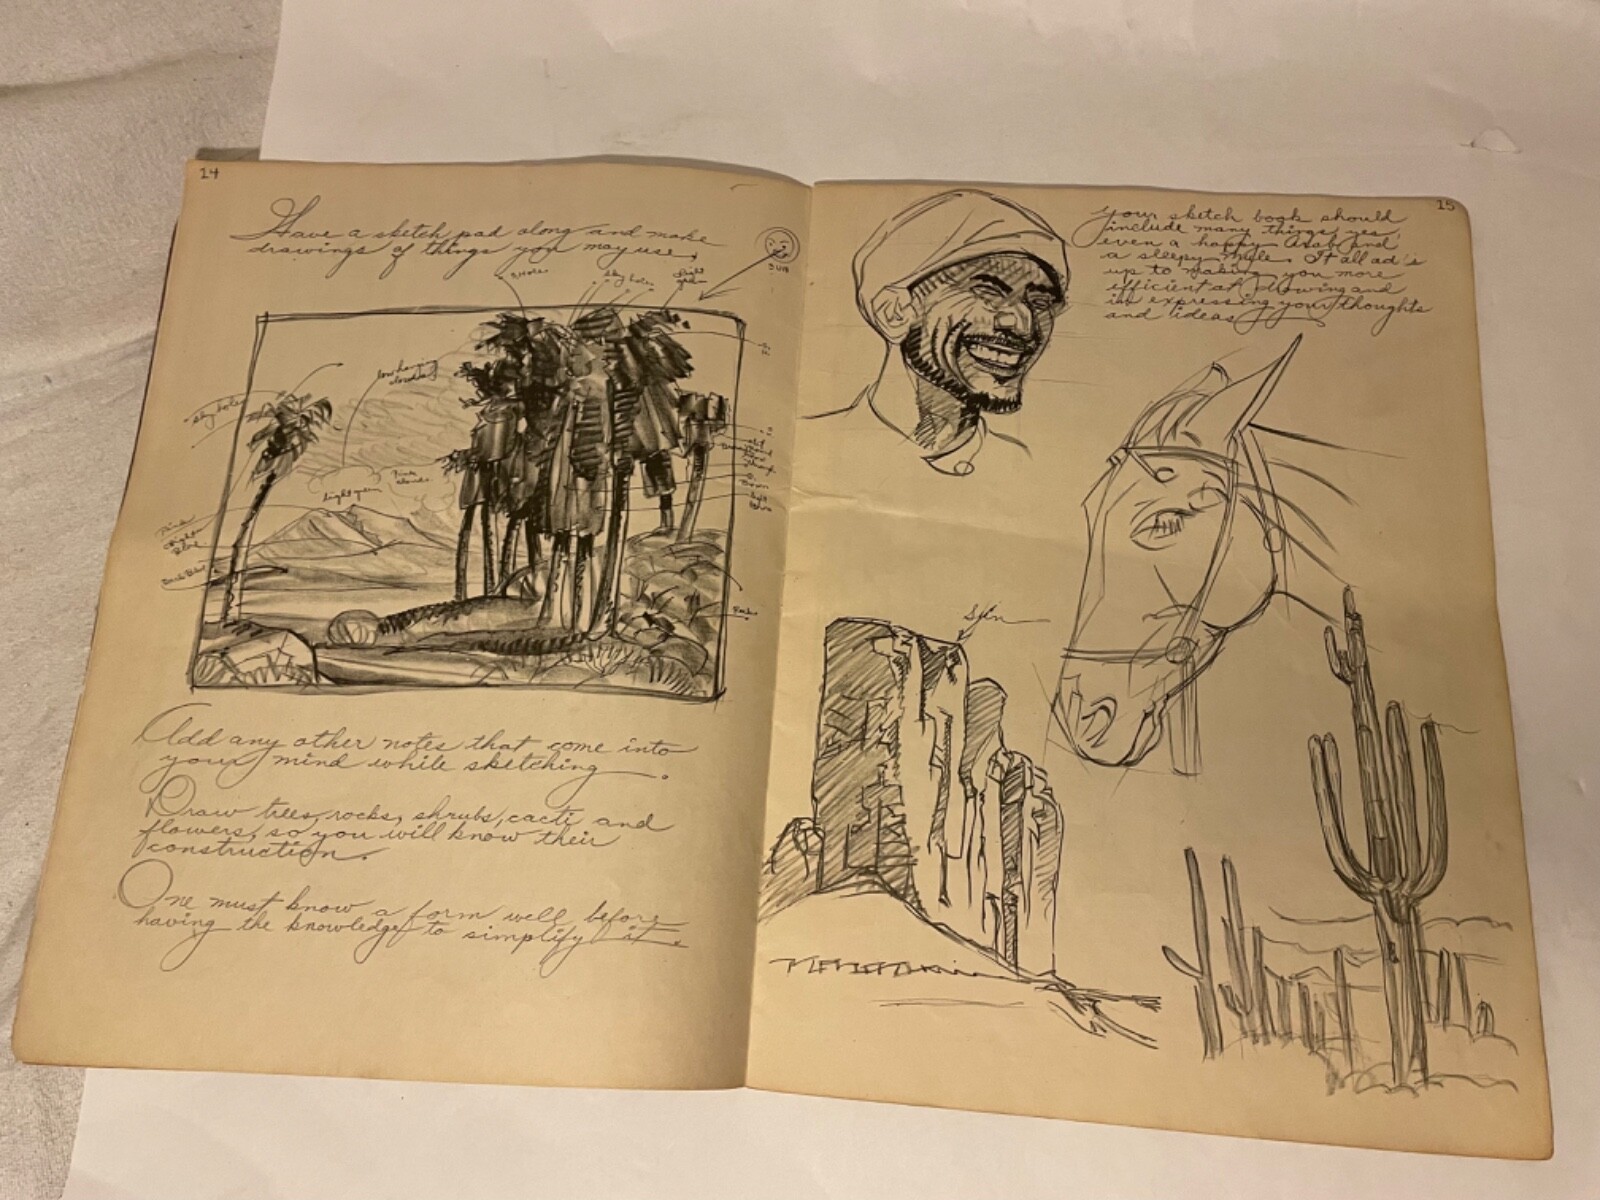 14
Have a sketch pad along and make
drawings of things you may use.
SUN
sky holes
light
green
sky holes
low hanging
clouds
Pink
clouds
light green
Pink
Dark Blue
Brown
light
Rocks
Add any other notes that come into
your mind while sketching.
Draw trees, rocks, shrubs, cacti and
flowers, so you will know their
construction.
One must know a form well before
having the knowledge to simplify it.
15
Your sketch book should
include many things, yes,
even a happy Arab and
a sleepy mule. It all ad's
up to making you more
efficient at drawing and
in expressing your thoughts
and ideas
Sun